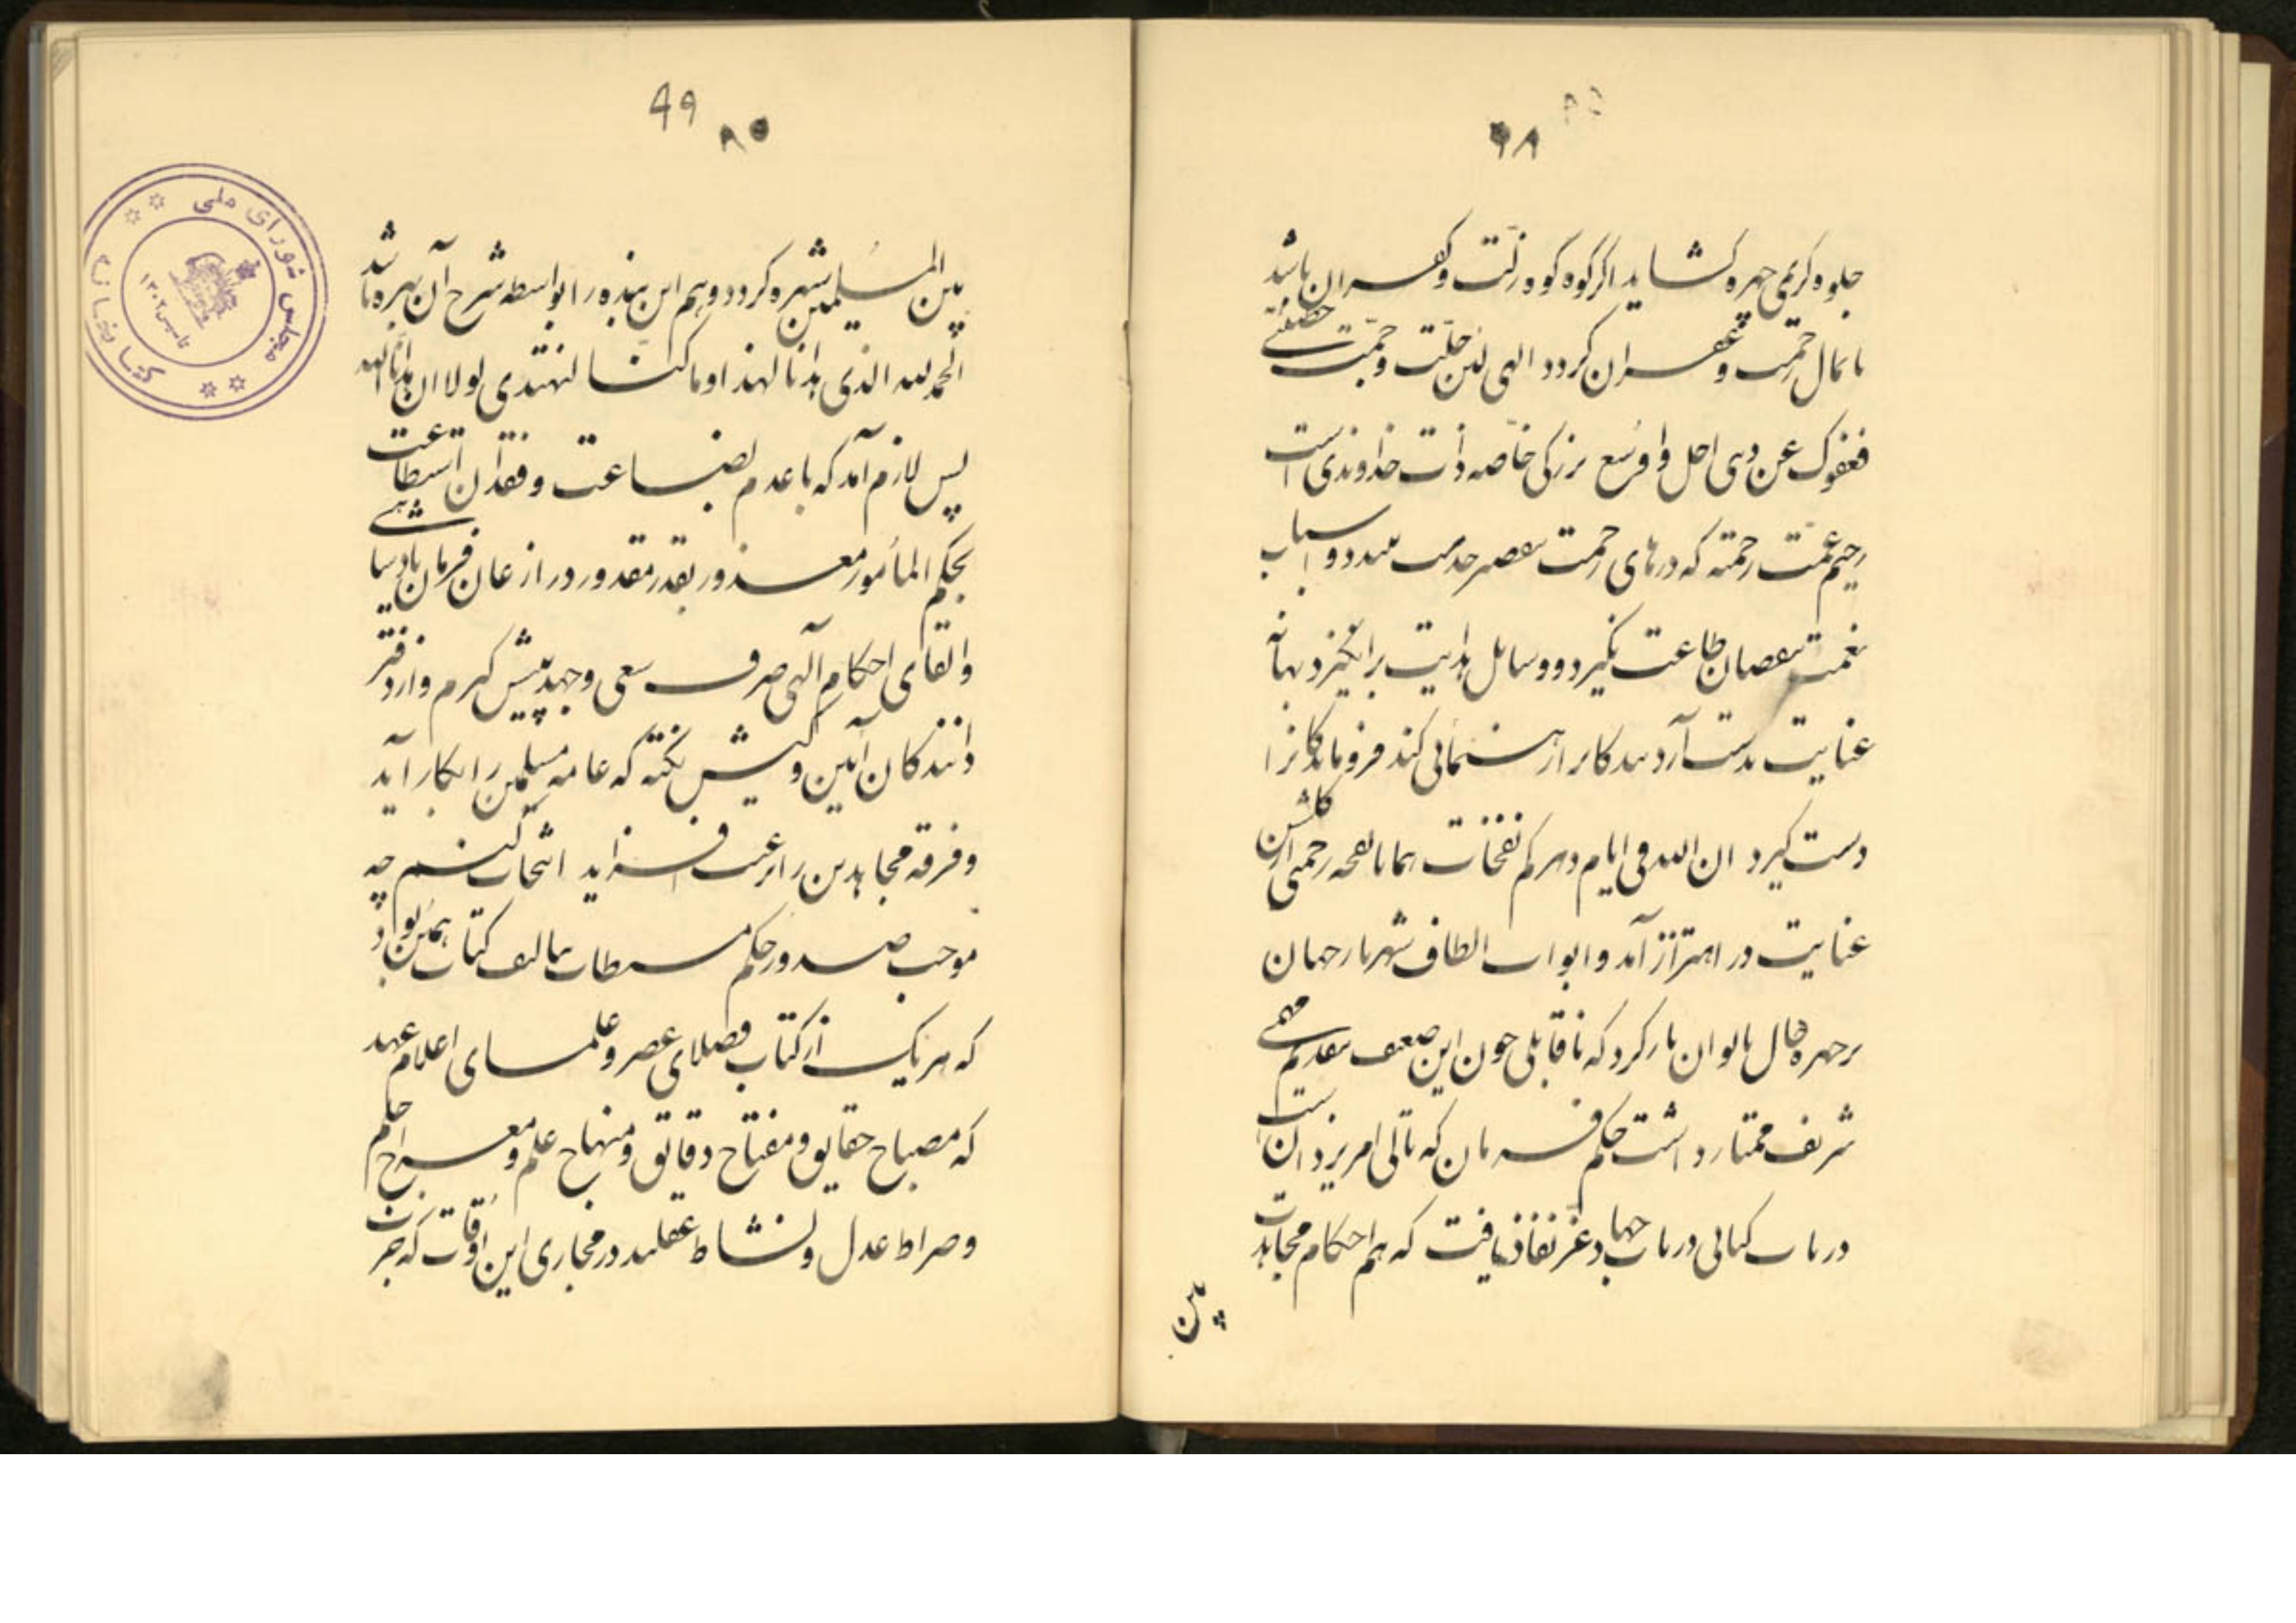 ۶۸
جلوه کریمی چهره کشاید اگر کوه کوه زلت و کفران باشد
پامال رحمت و غفران کردد الهی لئن جلت و جمت خطیئتی
فعفوک عن ذنبی اجل و اوسع بزرکی خاصه ذات خداوندی است
رحیم عمت رحمته که درهای رحمت بتقصیر خدمت نبندد و اسباب
نعمت بنقصان طاعت نکیرد و وسایل هدایت برانکیزد بهانه
عنایت بدست آرد بندکانرا رهنمائی کند فروماندکانرا
دست کیرد ان الله فی ایام دهرکم نفحات همانا نفحه رحمتی از کلشن
عنایت در اهتزاز آمد و ابواب الطاف شهریار جهان
بر چهره حال ناتوان باز کرد که ناقابلی چون این ضعیف بتقدیم مهمی
شریف ممتاز داشت حکم فرمان که تالی امر یزدان است
در باب کتابی در باب جهاد عز نفاذ یافت که هم احکام مجاهدت
بین
۶۹
۸۵
بین المسلمین شهره کردد و هم این بنده را بواسطه شرح آن بهره باشد
الحمد لله الذی هدانا لهذا و ما کنا لنهتدی لولا ان هدانا الله
پس لازم آمد که با عدم بضاعت و فقدان استطاعت
بحکم المأمور معذور بقدر مقدور در اذعان فرمان پادشاهی
و القای احکام الهی صرف سعی و جهد پیش کیرم و از دفتر
دانندکان آیین و کیش نکته که عامه مسلمین را بکار آید
و فرقه مجاهدین را رغبت افزاید انتخاب کنم چه
موجب صدور حکم مطاع بتالیف کتاب همین بود
که هر یک از کتاب فضلای عصر و علمای اعلام عهد
که مصباح حقایق و مفتاح دقایق و منهاج علم و معراج حلم
و صراط عدل و نشاط عقلند در مجاری این اوقات که جز
مجلس شورای ملی
کتابخانه
تاسیس ۱۳۰۲